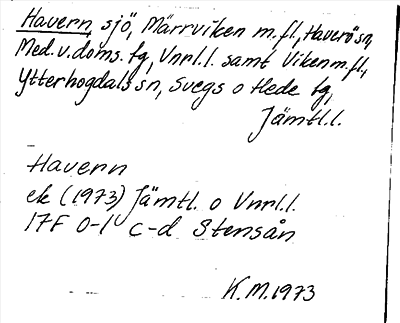 Havern, sjö, Märrviken m.fl, Haverö sn,
Med. v. doms. tg, Vnrl.l. samt Viken m.fl.,
Ytterhogdals sn, Svegs o Hede tg,
Jämtl.l.
Havern
ek (1973) Jämtl. o Vnrl.l.
17F 0-1 c-d Stensån
K.M. 1973